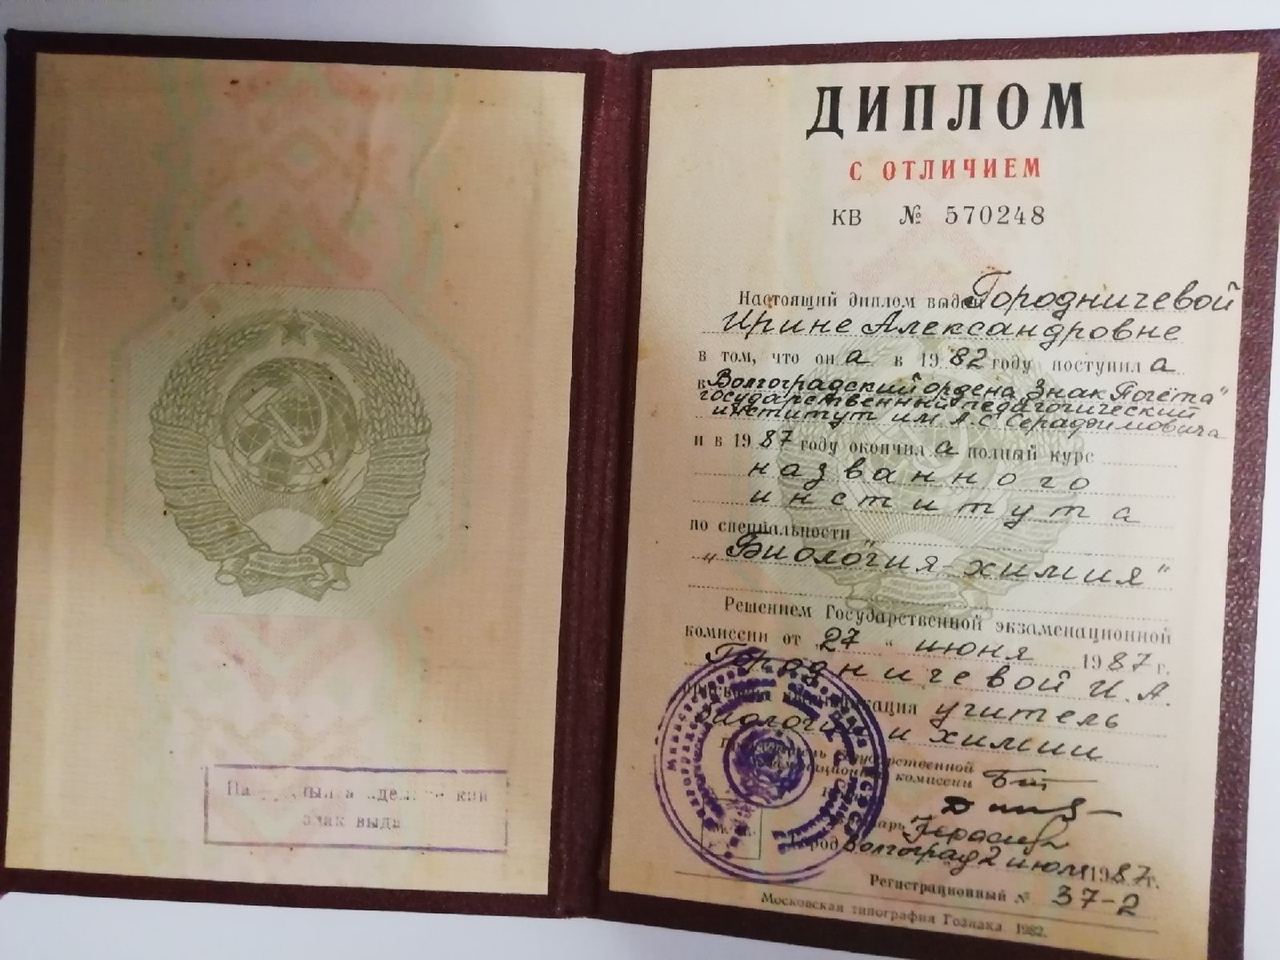 знак выда
ДИПЛОМ
С ОТЛИЧИЕМ
КВ № 570248
Настоящий диплом выдан Городничевой
Ирине Александровне
в том, что он а в 19 82 году поступил а
в Волгоградский ордена „Знак Почёта"
государственный педагогический
институт им. А.С. Серафимовича
и в 19 87 году окончил а полный курс
названного
института
по специальности
„Биология-химия"
Решением Государственной экзаменационной
комиссии от „27" июня 1987 г.
Городничевой И.А.
присвоена квалификация учитель
биологии и химии
Председатель Государственной
экзаменационной комиссии
М. П.
Город Волгоград 2 июля 1987г.
Регистрационный № 37-2
Московская типография Гознака. 1982.